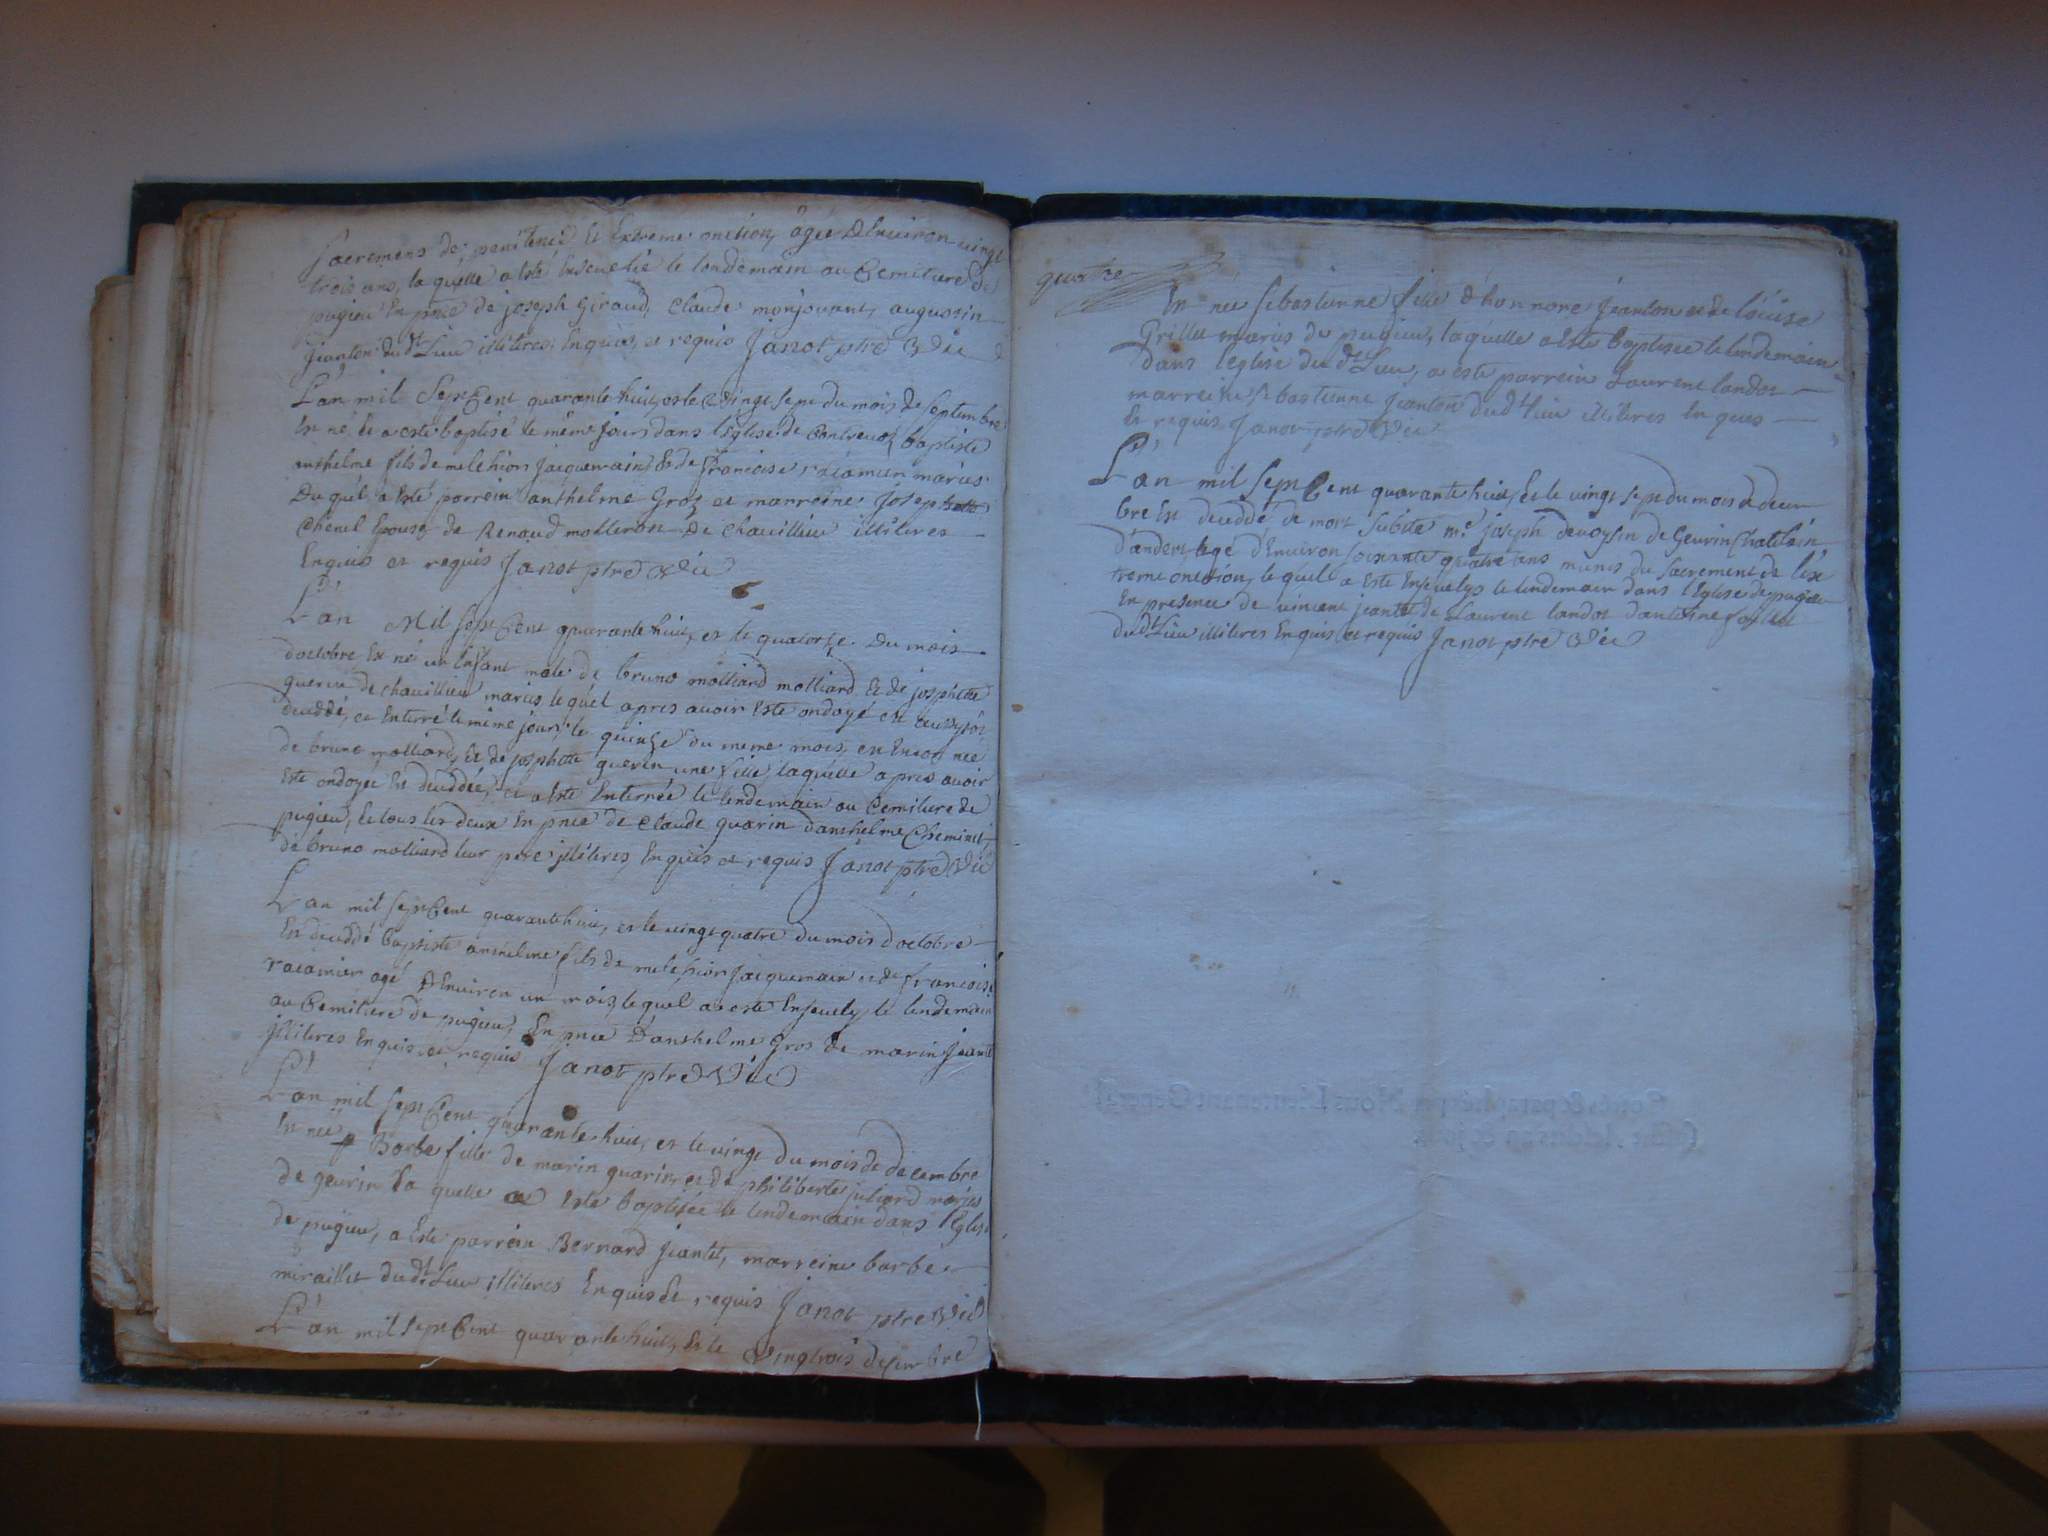 Sacremens de penitence et Extreme onction, âgée d'Environ vingt
trois ans, la quelle a esté Ensevelie le lendemain au Cemitiere de
pugieu En pnce de joseph Giraud, Claude monjouvent, augustin
jeanton du dt Lieu illiteres Enquis, et requis Janot ptre Vic
L'an mil Sept Cent quarante huit, et le vingt sept du mois de septembre
Est né et a esté baptisé le même jour dans l'Eglise de Contrevoz baptiste
anthelme fils de melchior jacquemain et de francoise racamier mariés
Du quel a esté parrein anthelme Groz et marreine josephette
Chenel Epouse de Renaud molleron De Chavillieu illiteres
Enquis et requis Janot ptre Vic
L'an Mil sept Cent quarante huit, et le quatorze Du mois
d'octobre Est né un Enfant male de bruno molliard molliard Et de josephette
guerin de chavillieu mariés, lequel apres avoir Esté ondoyé est aussytôt
decedé, et Enterré le même jour, le quinze du meme mois, est Encor née
de bruno molliard, Et de josphette guerin une fille, laquelle apres avoir
Esté ondoyée Est decedée, et a esté Enterrée le lendemain au Cemitiere de
pugieu, Et tous les deux En pnce de Claude guarin d'anthelme Cheminet,
de bruno molliard leur pere illiteres, Enquis et requis Janot ptre Vic
L'an mil sept Cent quarante huit, et le vingt quatre du mois d'octobre
Est decedé baptiste anthelme fils de melchior jacquemain et de francoise
racamier agé d'Environ un mois, lequel a esté Ensevely le lendemain
au Cemitiere de pugieu, En pnce D'anthelme Gros de marin jeantet
illiteres Enquis et requis Janot ptre Vic
L'an mil sept Cent quarante huit, et le vingt du mois de decembre
Est née Barbe fille de marin guarin, et de philiberte juliard mariés
de geurin La quelle a esté baptisée le lendemain dans l'Eglise
de pugieu, a Esté parrein Bernard jeantet, marreine barbe
miraillet du dt Lieu illiteres Enquis et requis Janot ptre Vic
L'an mil sept Cent quarante huit, Et le Vingtrois decembre
quatre
Est née sebastienne fille d'honnoré jeanton et de louise
Grillet mariés de pugieu, laquelle a esté baptisée le lendemain
dans l'eglise du dt Lieu, a esté parrein Laurent landot
marreine sebastienne jeanton dud lieu illiteres Enquis
Et requis Janot ptre Vic
L'an mil sept Cent quarante huit, Et le vingt sept du mois de decem
bre Est decedé de mort subite me joseph devoysin de Geurin Chatelain
d'andert agé d'Environ soixante quatre ans munis du sacrement de l'ex
treme onction, lequel a esté Ensevelys le lendemain dans l'Eglise de pugieu
En presence de vincent jeantet de Laurent landot d'antoine
du dt Lieu illiteres Enquis et requis Janot ptre Vic